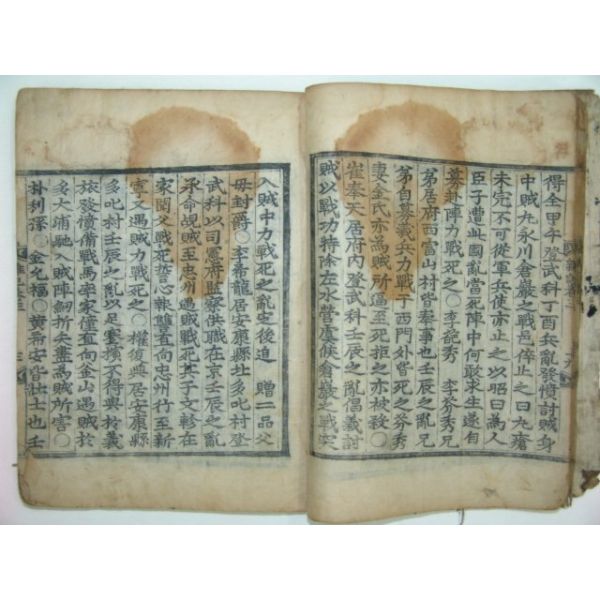 得全甲午登武科丁酉兵亂發憤討賊身
中賊丸永川倉巖之戰邑倅止之曰丸瘡
未完不可從軍兵使亦止之以昭曰為人
臣子遭此國亂當死陣中何敢求生遂自
募赴陣力戰死之○李說秀 李芬秀兄
弟居府西富山村皆奉事也壬辰之亂兄
弟自募義兵力戰于西門外皆死之芬秀
妻金氏亦為賊所逼至死拒之亦被殺○
崔奉天居府內登武科壬辰之亂倡義討
賊以戰功特除左水營虞候倉巖之戰突
入賊中力戰死之亂定後追 贈二品父
母封爵○李希龍居安康縣北多叱村登
武科以司憲府監察供職在京壬辰之亂
承命覘賊至忠州遇賊戰死其子文軫在
東聞父戰死誓心報讐直向忠州行至新
寧又遇賊力戰死之○權復興居安康縣
多叱村壬辰之亂以足蹇不得與於義
旅發憤備戰馬率家僮直向金山遇賊於
多大浦馳入賊陣劒折矢盡為賊所害○
朴利孫○金允福○黃希安皆壯士也壬